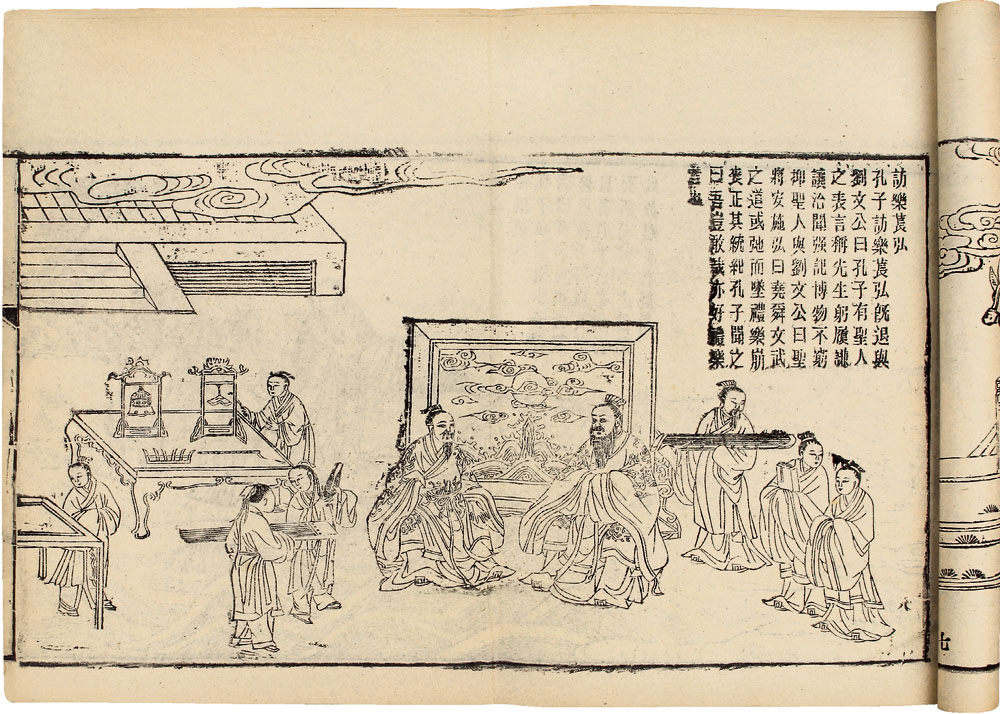 訪樂萇弘
孔子訪樂萇弘旣退與
劉文公曰孔子有聖人
之表言稱先生躬履謙
讓洽聞强記博物不窮
抑聖人與劉文公曰聖
將安施弘曰堯舜文武
之道或弛而墜禮樂崩
喪正其統紀孔子聞之
曰吾豈敢哉亦好禮樂
者也
七